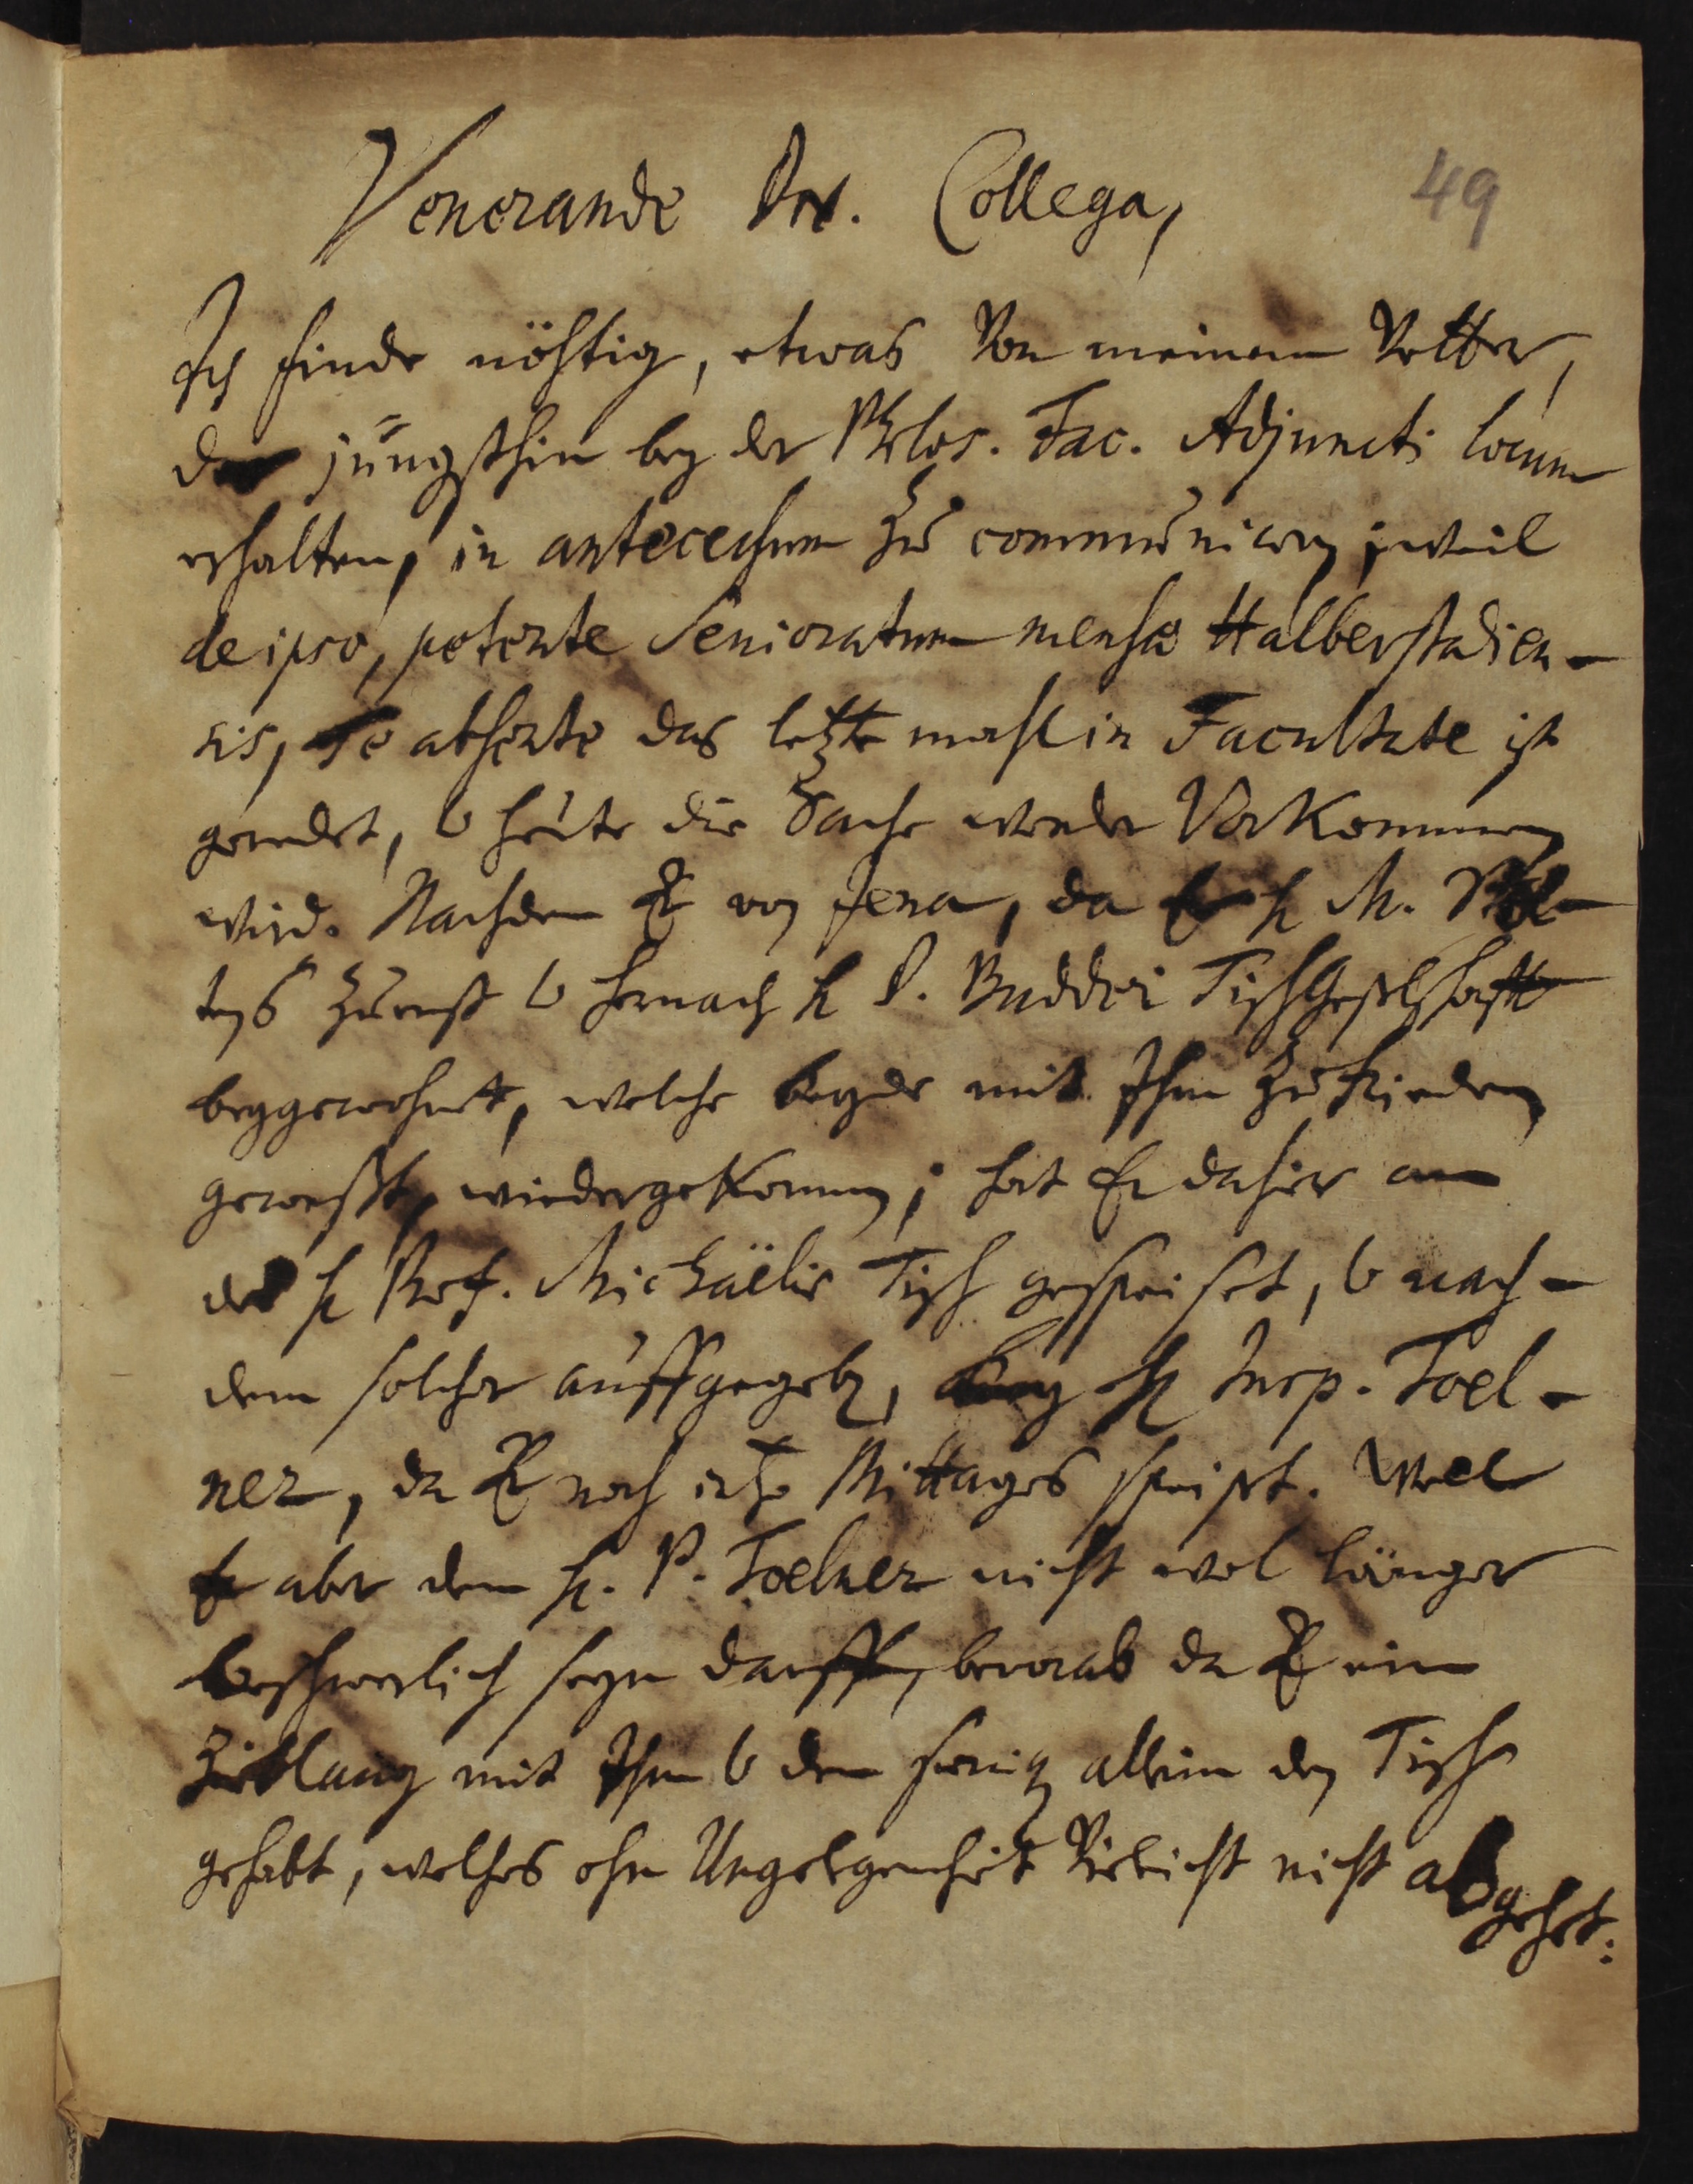 Venerande Dn. Collega,
49
Ich finde nöhtig, etwas von meinem Vetter,
der jüngsthin bey der Philos. Fac. Adjuncti locum
erhalten, in antecessum zu communiciren; weil
de ipso, petente Senioratum mensae Halberstadien-
sis, Te absente das letzte mahl in Facultate ist
geredet, u heute die Sache wieder Vorkommen
wird. Nachdem Er von Jena, da Er H M.
zuerst u hernach H D. Buddei Tischgeselschafft
beygewohnet, welche beyde mit Ihm zufrieden
gewesst, wiedergekommen; hat Er dahier an
des H Prof. Michaëlis Tisch gespeiset, u nach-
dem solcher auffgegeben, bey H Insp. Toel-
ner, da Er noch itzo Mittages speiset. Weil
Er aber dem H. P. Toelner nicht wol länger
beschwerlich seyn darff, bevorab da Er eine
Zeitlang mit Ihm u den seinigen allein den Tisch
gehabt, welches ohne Ungelegenheit vieleicht nicht abgehet: